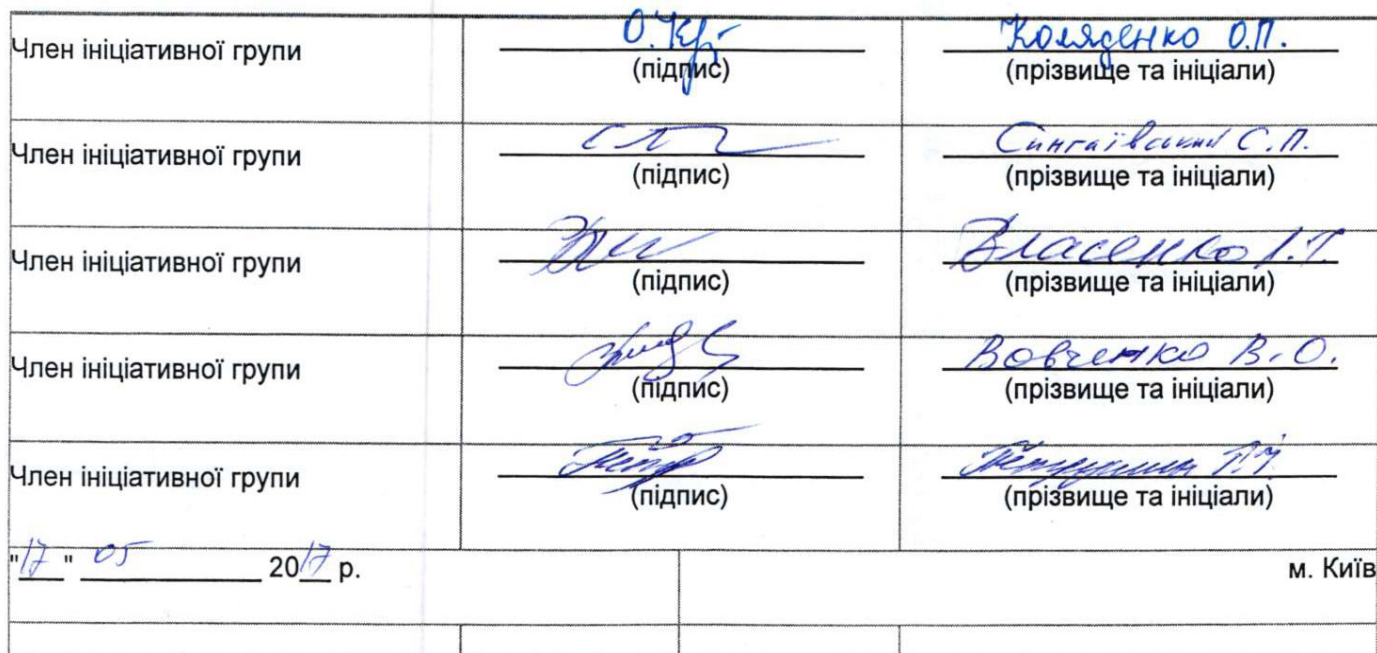 Член ініціативної групи (підпис) Коляденко О.П. (прізвище та ініціали)
Член ініціативної групи (підпис) Сингаївський С.П. (прізвище та ініціали)
Член ініціативної групи (підпис) Власенко І.Т. (прізвище та ініціали)
Член ініціативної групи (підпис) Вовченко В.О. (прізвище та ініціали)
Член ініціативної групи (підпис) (прізвище та ініціали)
"17" 05 2017 р. м. Київ